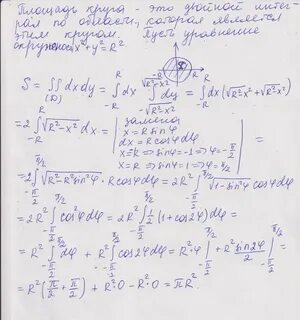 Площадь круга - это двойной интег
рал по области, которая является
этим кругом. Пусть уравнение
окружности x²+y²=R²
S = ∬dxdy = ∫dx ∫dy = ∫dx(√R²-x² + √R²-x²)
(D) -R -√R²-x² -R
= 2∫√R²-x² dx = | замена x = R sinφ dx = R cosφ dφ x=-R ⇒ sinφ=-1 ⇒ φ=-π/2 x=R ⇒ sinφ=1 ⇒ φ=π/2 | =
= 2∫√R²-R²sin²φ · R cosφ dφ = 2R²∫√1-sin²φ cosφ dφ
= 2R²∫cos²φ dφ = 2R²∫½(1+cos2φ)dφ =
= R²∫dφ + R²∫cos2φ dφ = R²·φ| + R² sin2φ/2 | =
= R²(π/2 + π/2) + R²·0 - R²·0 = πR².